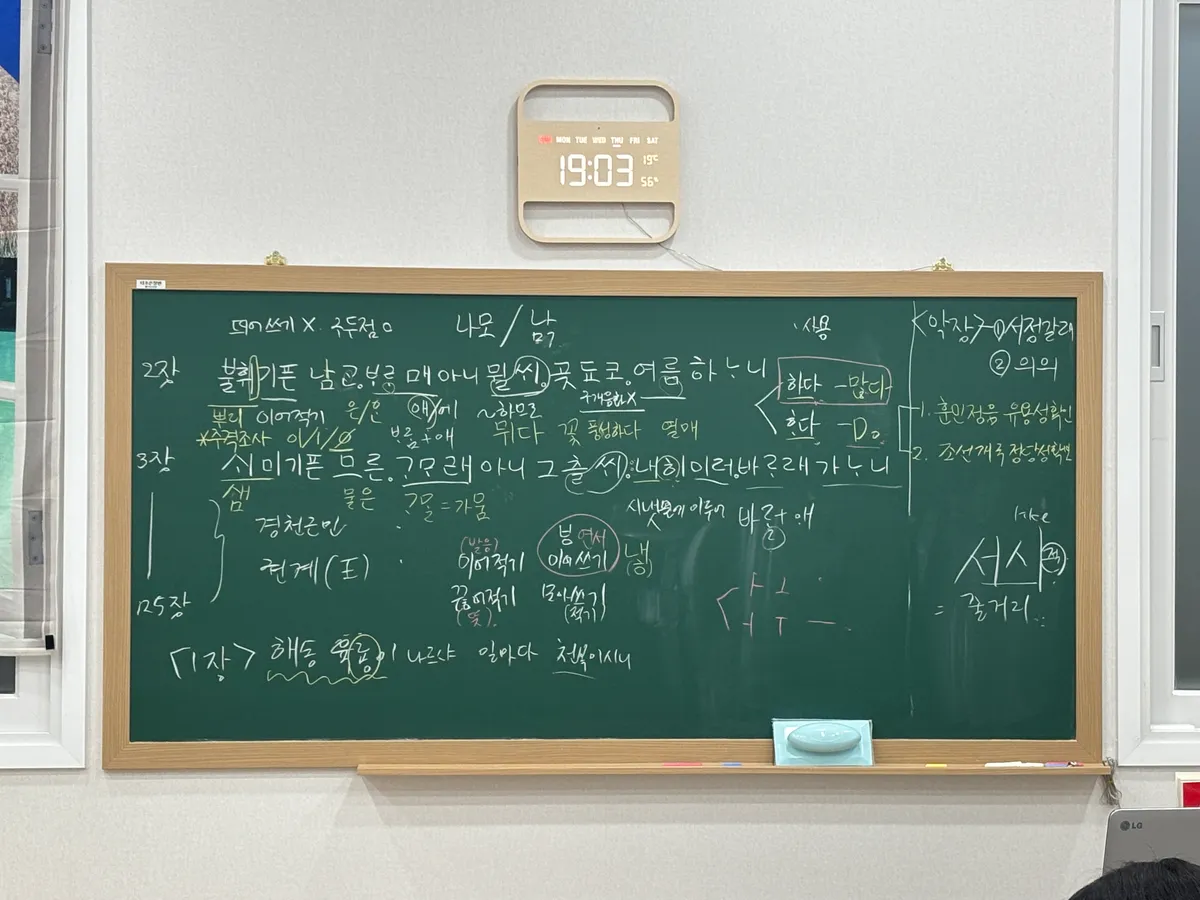 MON TUE WED THU FRI SAT
19:03 19℃
56%
띄어쓰기 X. 구두점 o
나모 / 남ㄱ
·사용
<악장> ①서정갈래
② 의의
2장 불휘기픈 남ᄀᆞᆫᄇᆞᄅᆞ매아니뮐씨.곶됴코.여름하ᄂᆞ니
하다 - 많다
ᄒᆞ다 - Do
뿌리 이어적기 은/ᄋᆞᆫ 애/에 ~하므로 구개음화X
*주격조사 이/ㅣ/∅ ᄇᆞᄅᆞᆷ+애 뮈다 꽃 풍성하다 열매
1. 훈민정음 유용성확인
2. 조선개국 정당성확보
3장 ᄉᆡ미기픈므른.ᄀᆞᄆᆞ래아니그츨씨.내히이러.바ᄅᆞ래가ᄂᆞ니
샘 물은 ᄀᆞᄆᆞᆯ=가뭄 시냇물에 이루어 바ᄅᆞᆯ+애
②
경천근민
권계(王)
(발음)
이어적기
끊어적기
(뜻)
ㅸ 연서
이어쓰기
모아쓰기
(적기)
ㅏ ㅗ
ㅓ ㅜ ㅡ
like
서사적
= 줄거리..
125장
<1장> 해동 육룡이 나르샤 일마다 천복이시니
LG